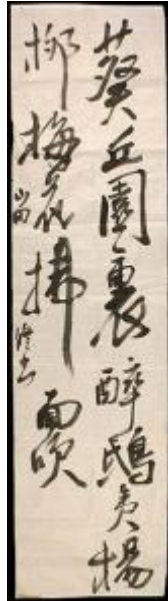 葵丘園裏醉鴟夷楊
柳梅花拂面吹